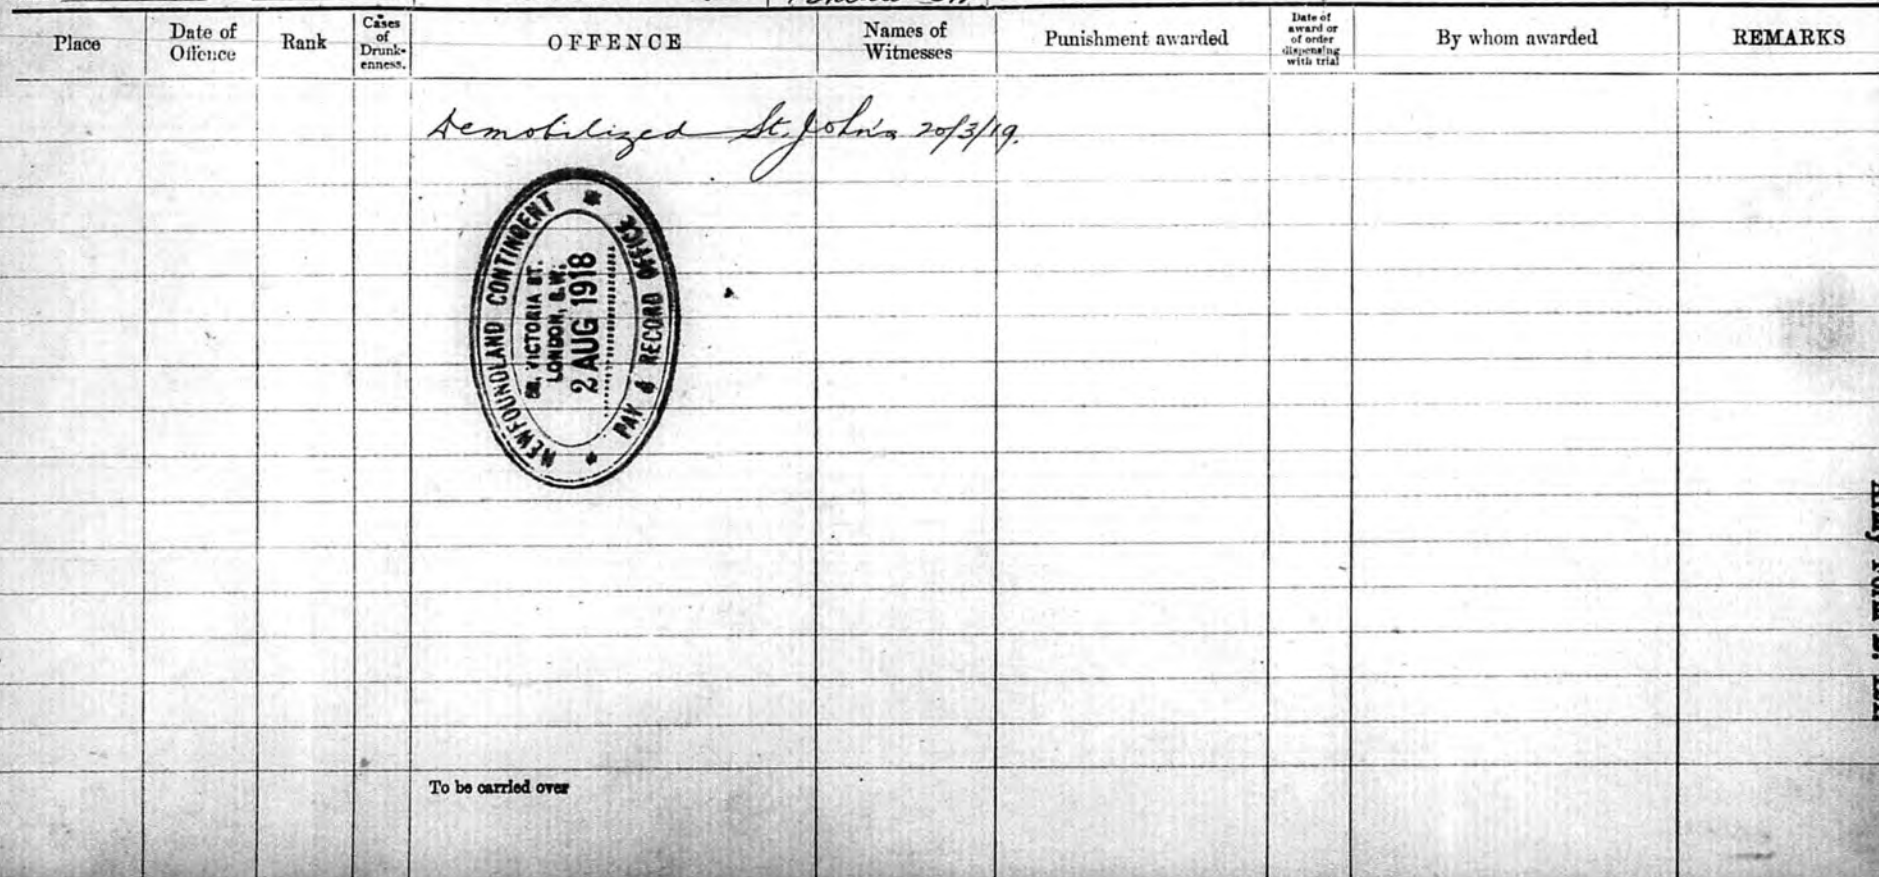 Place
Date of
Offence
Rank
Cases
of
Drunk-
enness.
OFFENCE
Names of
Witnesses
Punishment awarded
Date of
award or
of order
dispensing
with trial
By whom awarded
REMARKS
Demobilized St. John's 20/3/19.
NEWFOUNDLAND CONTINGENT
VICTORIA ST.
LONDON, S.W.
2 AUG 1918
PAY & RECORD OFFICE
To be carried over